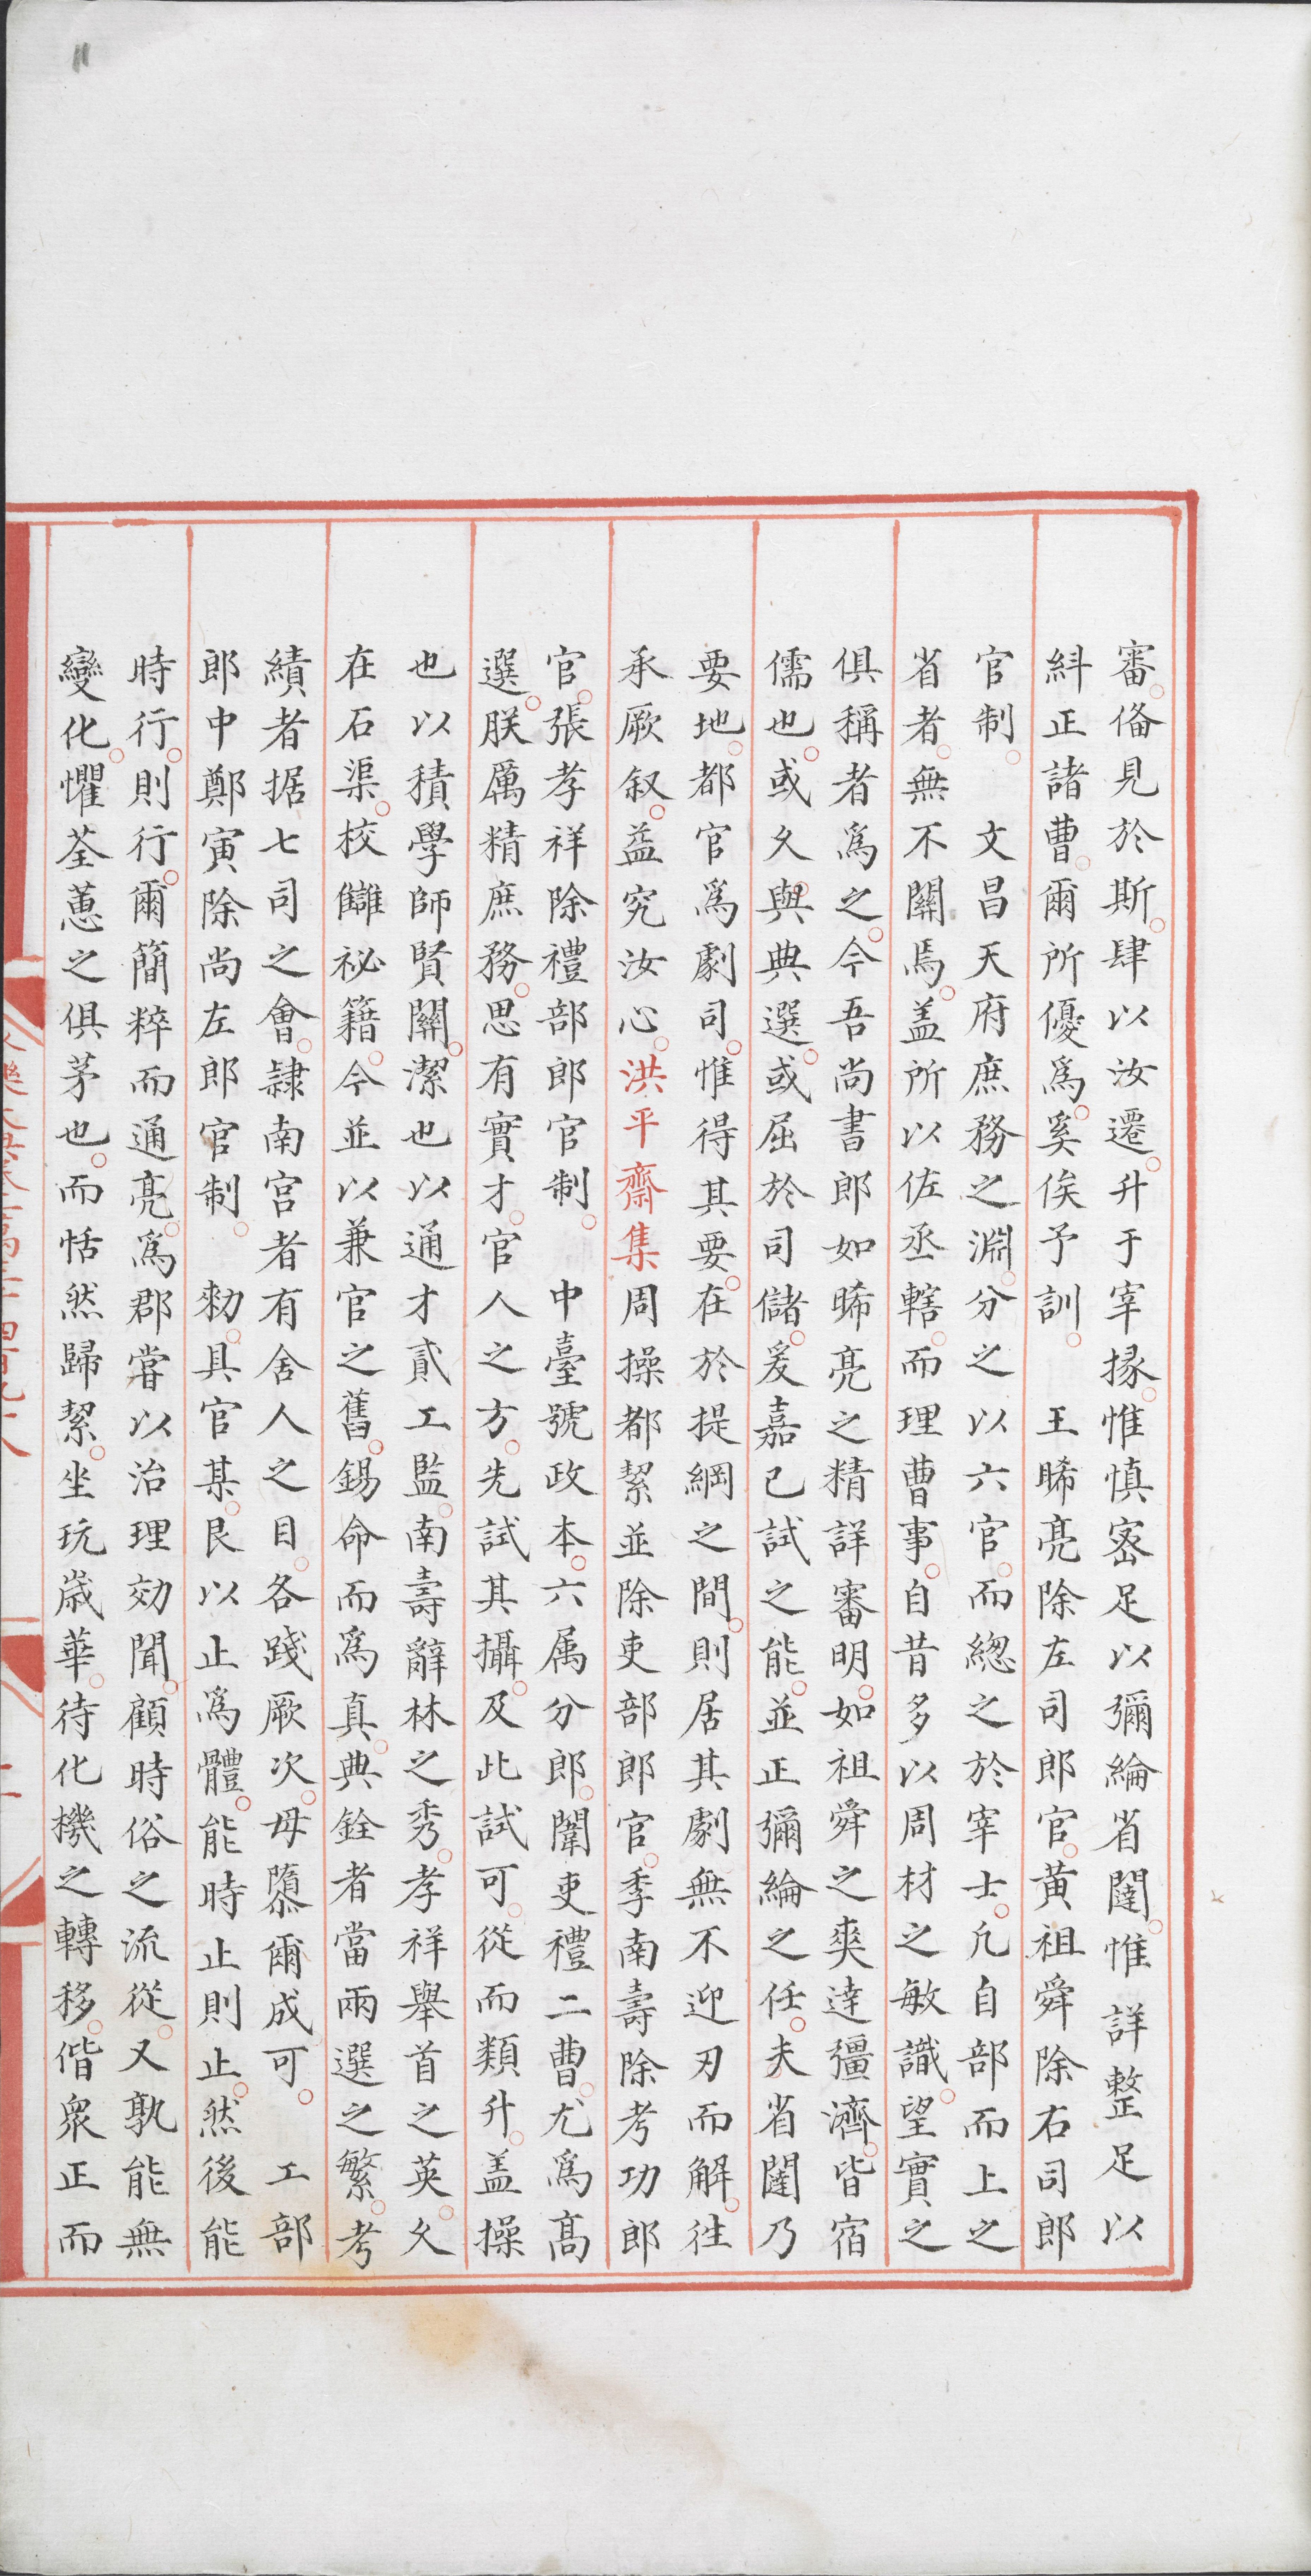 審。俻見於斯。肆以汝遷。升于宰掾。惟慎宻足以彌綸省闥。惟詳整足以
糾正諸曹。爾所優爲。奚俟予訓。　王晞亮除左司郎官。黄祖舜除右司郎
官制。　文昌天府庶務之淵。分之以六官。而緫之於宰士。凢自部而上之
省者。無不關焉。盖所以佐丞轄。而理曹事。自昔多以周材之敏識。望實之
俱稱者爲之。今吾尚書郎如晞亮之精詳審明。如祖舜之爽達彊濟。皆宿
儒也。或久與典選。或屈於司儲。爰嘉已試之能。並正彌綸之任。夫省闥乃
要地。都官爲劇司。惟得其要。在於提綱之間。則居其劇無不迎刃而解。徃
承厥叙。益究汝心。洪平齋集周操都絜並除吏部郎官。季南壽除考功郎
官。張孝祥除禮部郎官制。　中臺號政本。六属分郎。闈吏禮二曹。尤爲髙
選。朕厲精庶務。思有實才。官人之方。先試其攝。及此試可。從而類升。盖操
也以積學師賢關。潔也以通才貳工監。南壽辭林之秀。孝祥舉首之英。久
在石渠。校讎祕籍。今並以兼官之舊。錫命而爲真。典銓者當兩選之繁。考
績者据七司之會。隷南宫者有舍人之目。各踐厥次。毋隳爾成可。　工部
郎中鄭寅除尚左郎官制。　勑。具官某。艮以止爲體。能時止則止。然後能
時行。則行。爾簡粹而通亮。爲郡甞以治理効聞。顧時俗之流從。又孰能無
變化。懼荃蕙之俱茅也。而恬然歸絜。坐玩嵗華。待化機之轉移。偕衆正而